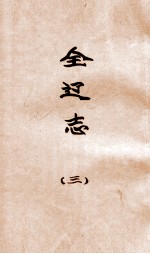 全辽志
(三)